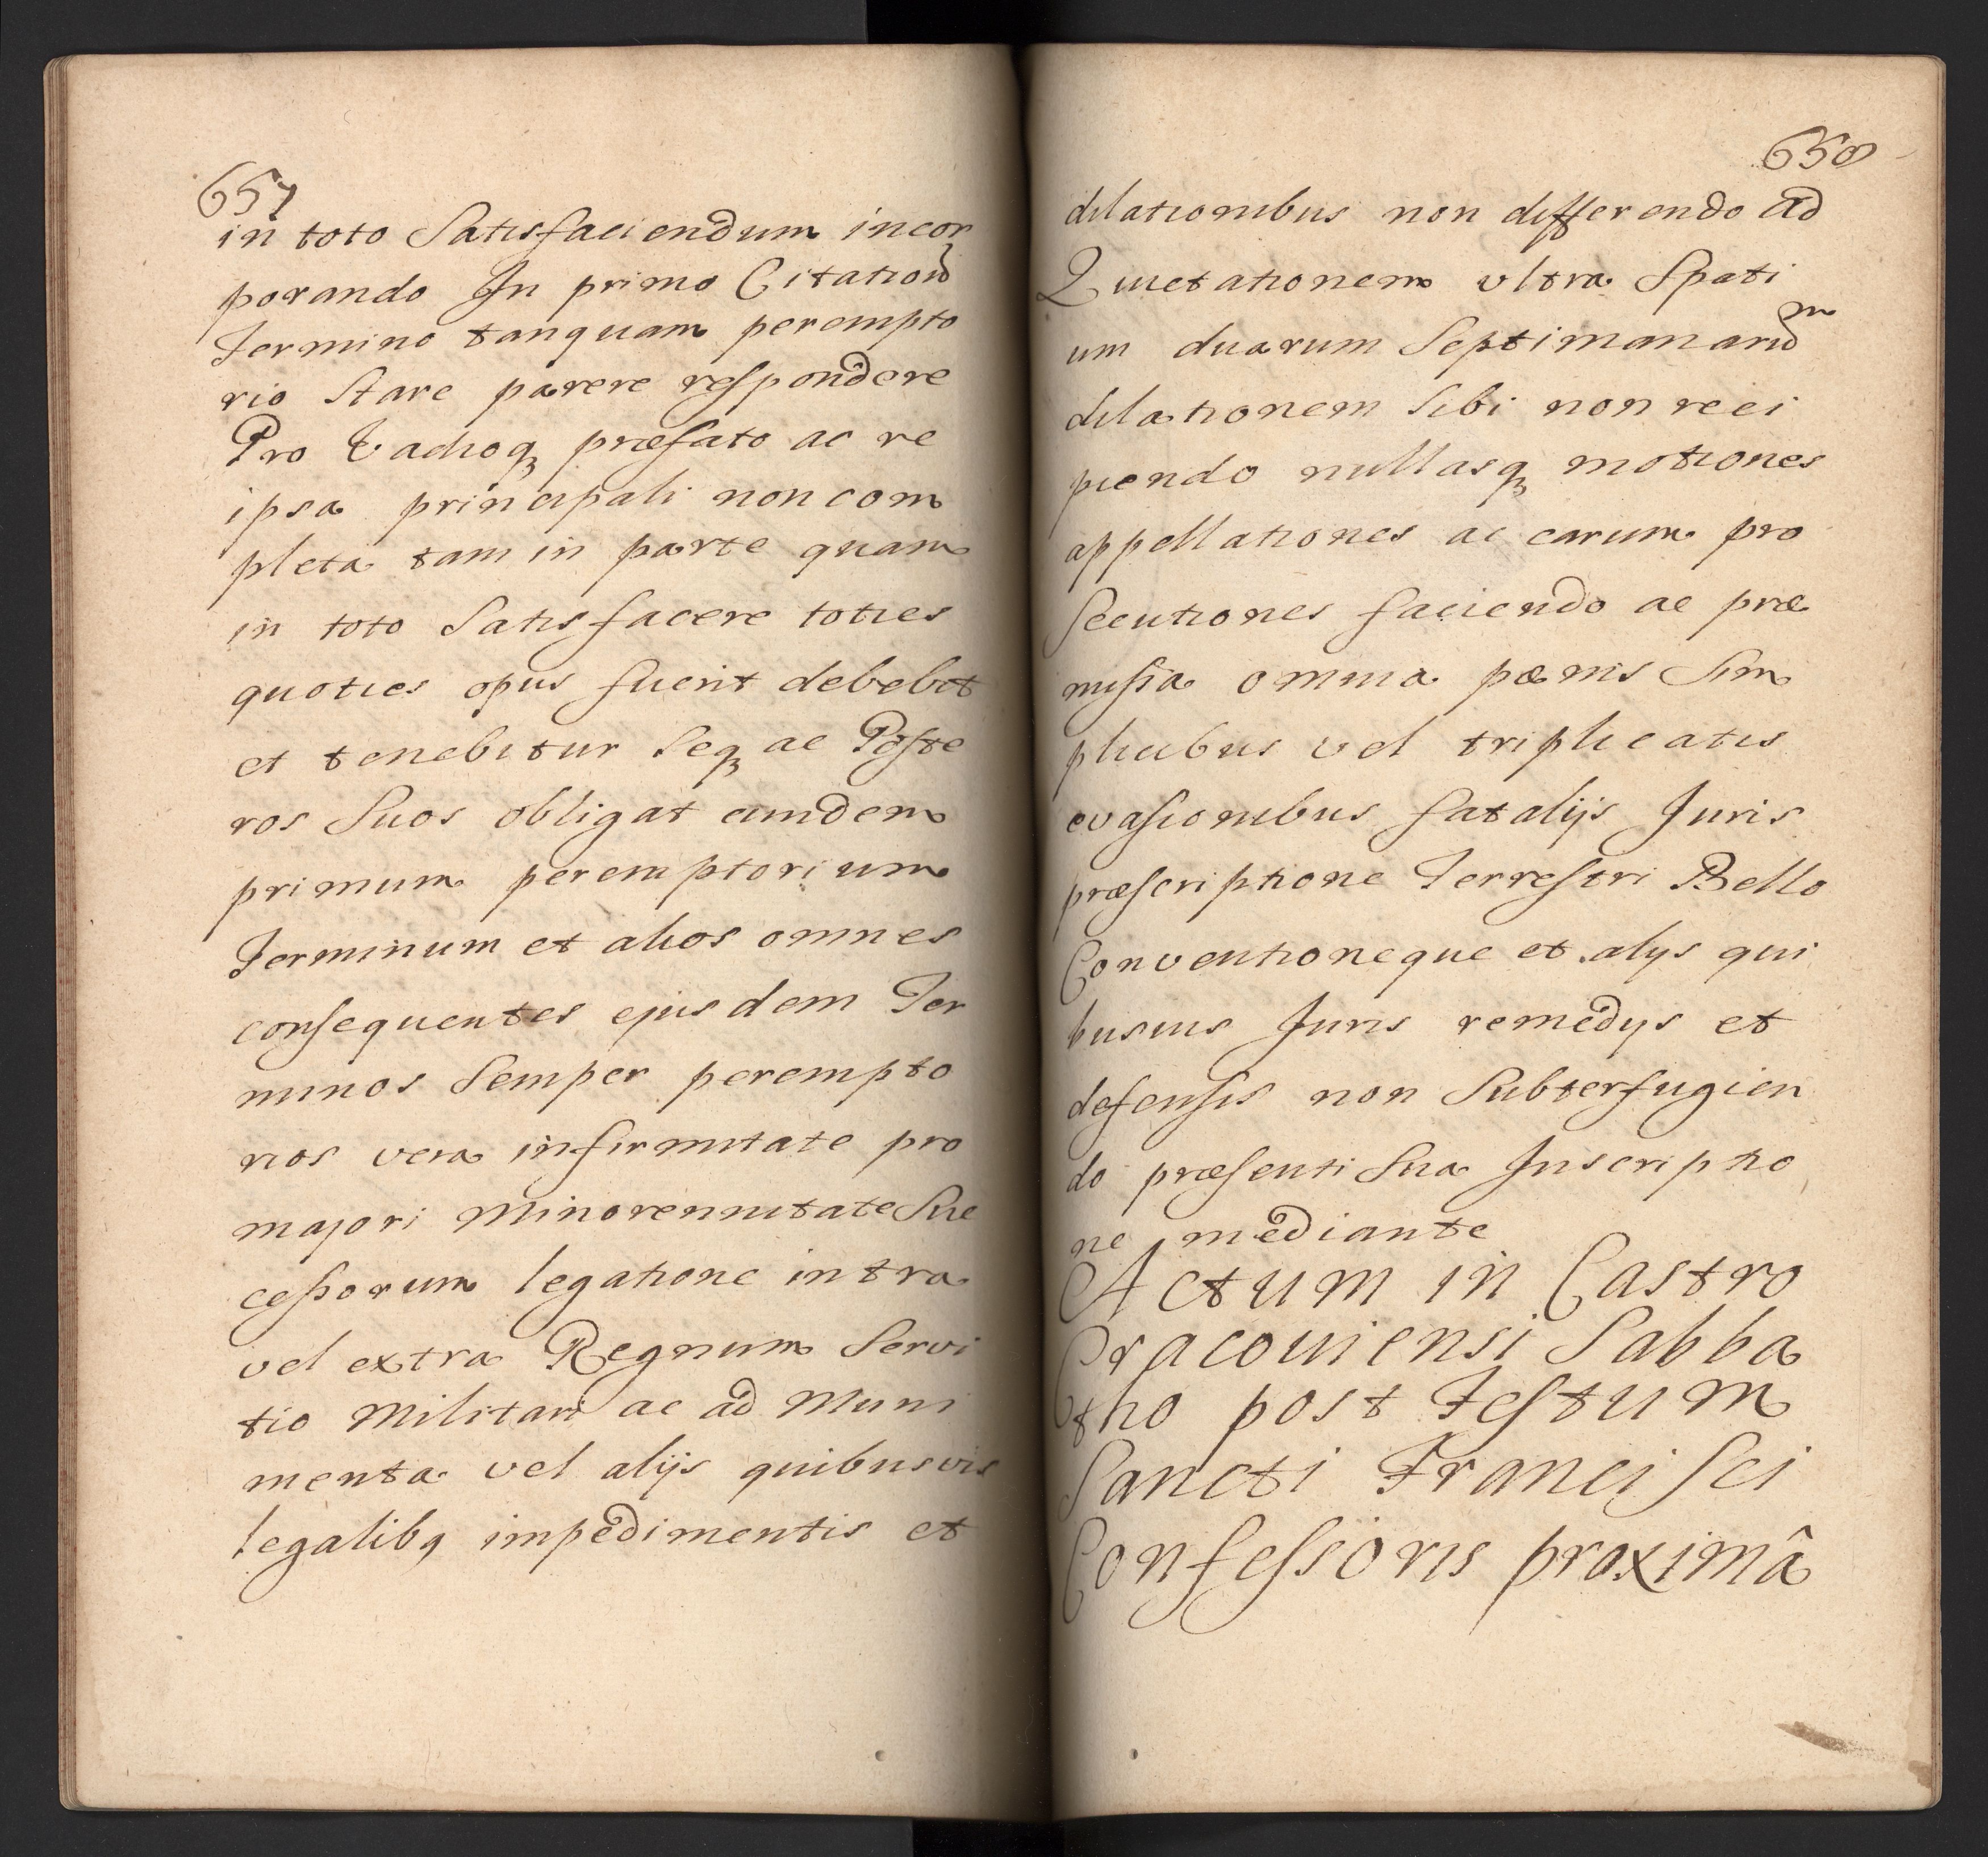 657
in toto Satisfaciendum incor
porando In primo Citationũ
Termino tanquam perempto
rio Stare parere respondere
Pro Vadioq₃ præfato ac re
ipsa principali non com
pleta tam in parte quam
in toto Satisfacere toties
quoties opus fuerit debebit
et tenebitur Seq₃ ac Poste
ros Suos obligat eundem
primum peremptorium
Terminum et alios omnes
consequentes ejusdem Ter
minos Semper perempto
rios vera infirmitate pro
majori Minorennitate Suc
cessorum legatione intra
vel extra Regnum Servi
tio Militari ac ad Muni
menta vel alijs quibusvis
legalibq impedimentis et
658
dilationibus non differendo ad
Quietationem ultra Spati
um duarum Septimanarũm
dilationem Sibi non reci
piendo nullasq₃ motiones
appellationes ac earum pro
Secutiones faciendo ac præ
missa omnia pœnis Sim
plicibus vel triplicatis
evasionibus fatalijs Juris
præscriptione Terrestri Bello
Conventioneque et alys qui
busvis Juris remedys et
defensis non Subterfugien
do præsenti Sua Inscriptio
ne mediante
Actum in Castro
Cracoviensi Sabba
tho post Festum
Sancti Francisci
Confessoris proximâ